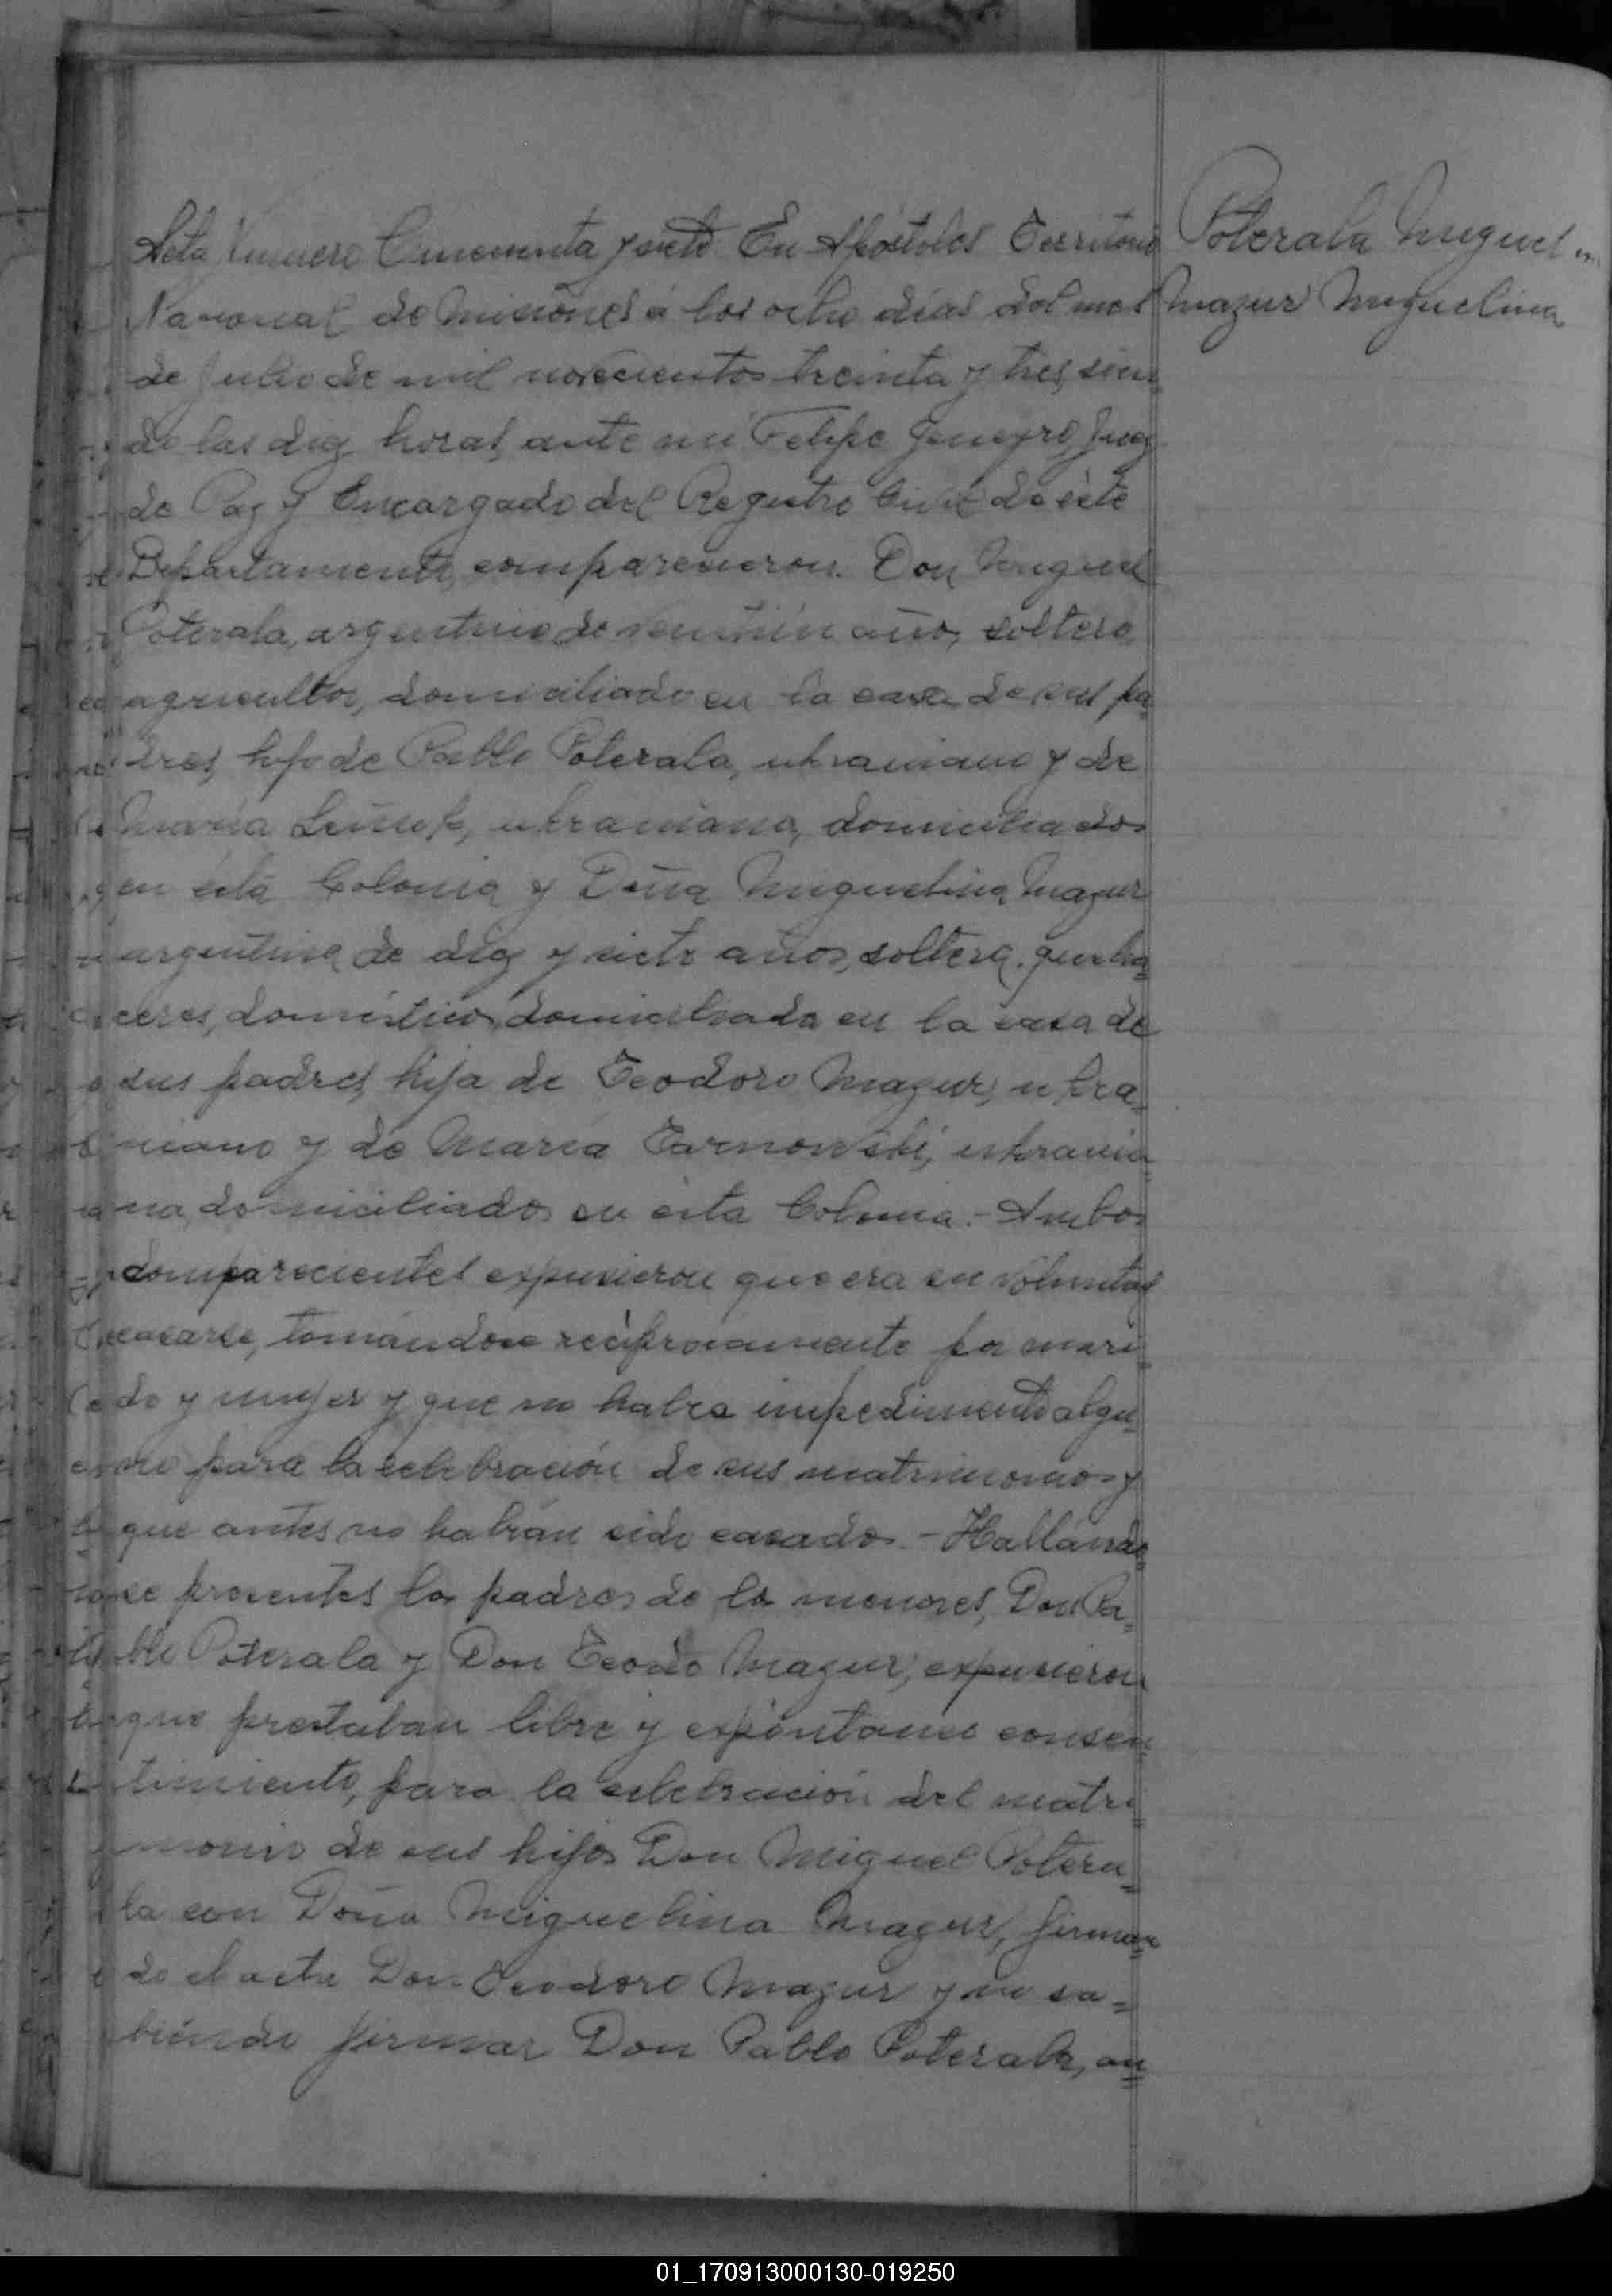 Acta Número Cincuenta y siete En Apóstoles Territorio
Nacional de Misiones á los ocho días del mes
de Julio de mil novecientos treinta y tres, sien
do las diez horas, ante mi Felipe Juez
de Paz y Encargado del Registro Civil de éste
Departamento, comparecieron. Don Miguel
Poterala, argentino de veintiún años, soltero,
agricultor, domiciliado en la casa de sus pa
dres, hijo de Pablo Poterala, ukraniano y de
María ukraniana, domiciliados
en ésta Colonia y Doña Miguelina Mazur
argentina de diez y siete años, soltera. queha=
ceres, domésticos, domiciliada en la casa de
sus padres, hija de Teodoro Mazur, ukra=
niano y de María Tarnowski, ukrania
na, domiciliados en ésta Colonia.- Ambos
comparecientes expusieron que era su voluntad
casarse, tomándose recíprocamente por mari=
do y mujer y que no había impedimento algu=
no para la celebración de sus matrimonios y
que antes no habían sido casados.- Hallándo=
se presentes los padres de los menores, Don Pa=
blo Poterala y Don Teodoro Mazur, expusieron
que prestaban libre y espontáneo consen=
timiento, para la celebración del matri=
monio de sus hijos Don Miguel Potera=
la con Doña Miguelina Mazur, firman=
do el acta Don Teodoro Mazur y no sa=
biendo firmar Don Pablo Poterala, an=
Poterala Miguel con
Mazur Miguelina
01_170913000130-019250